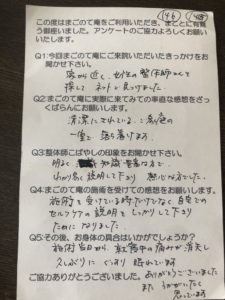 この度はまごのて庵をご利用いただき、まことに有難
う御座いました。アンケートのご協力よろしくお願い
いたします。
Q1:今回まごのて庵にご来院いただいたきっかけをお
聞かせ下さい。
家から近く、女性の整体師さんで
探して ネットで見つけました。
Q2:まごのて庵に実際に来てみての率直な感想をざっ
くばらんにお願いします。
清潔にされている
落ち着けます。
Q3:整体師こばやしの印象をお聞かせ下さい。
明るく 知識豊富な方で、
わかり易く説明して下さり 安心な方でした。
Q4:まごのて庵の施術を受けての感想をお願いします。
施術を受けている時だけでなく 自宅での
セルフケアの説明もしっかりして下さり
ためになりました
Q5:その後、お身体の具合はいかがでしょうか?
施術当日から、 の痛みが消失し
久しぶりに ぐっすり 眠れています
ご協力ありがとうございました。
ありがとうございました
また うかがいたく
思っています